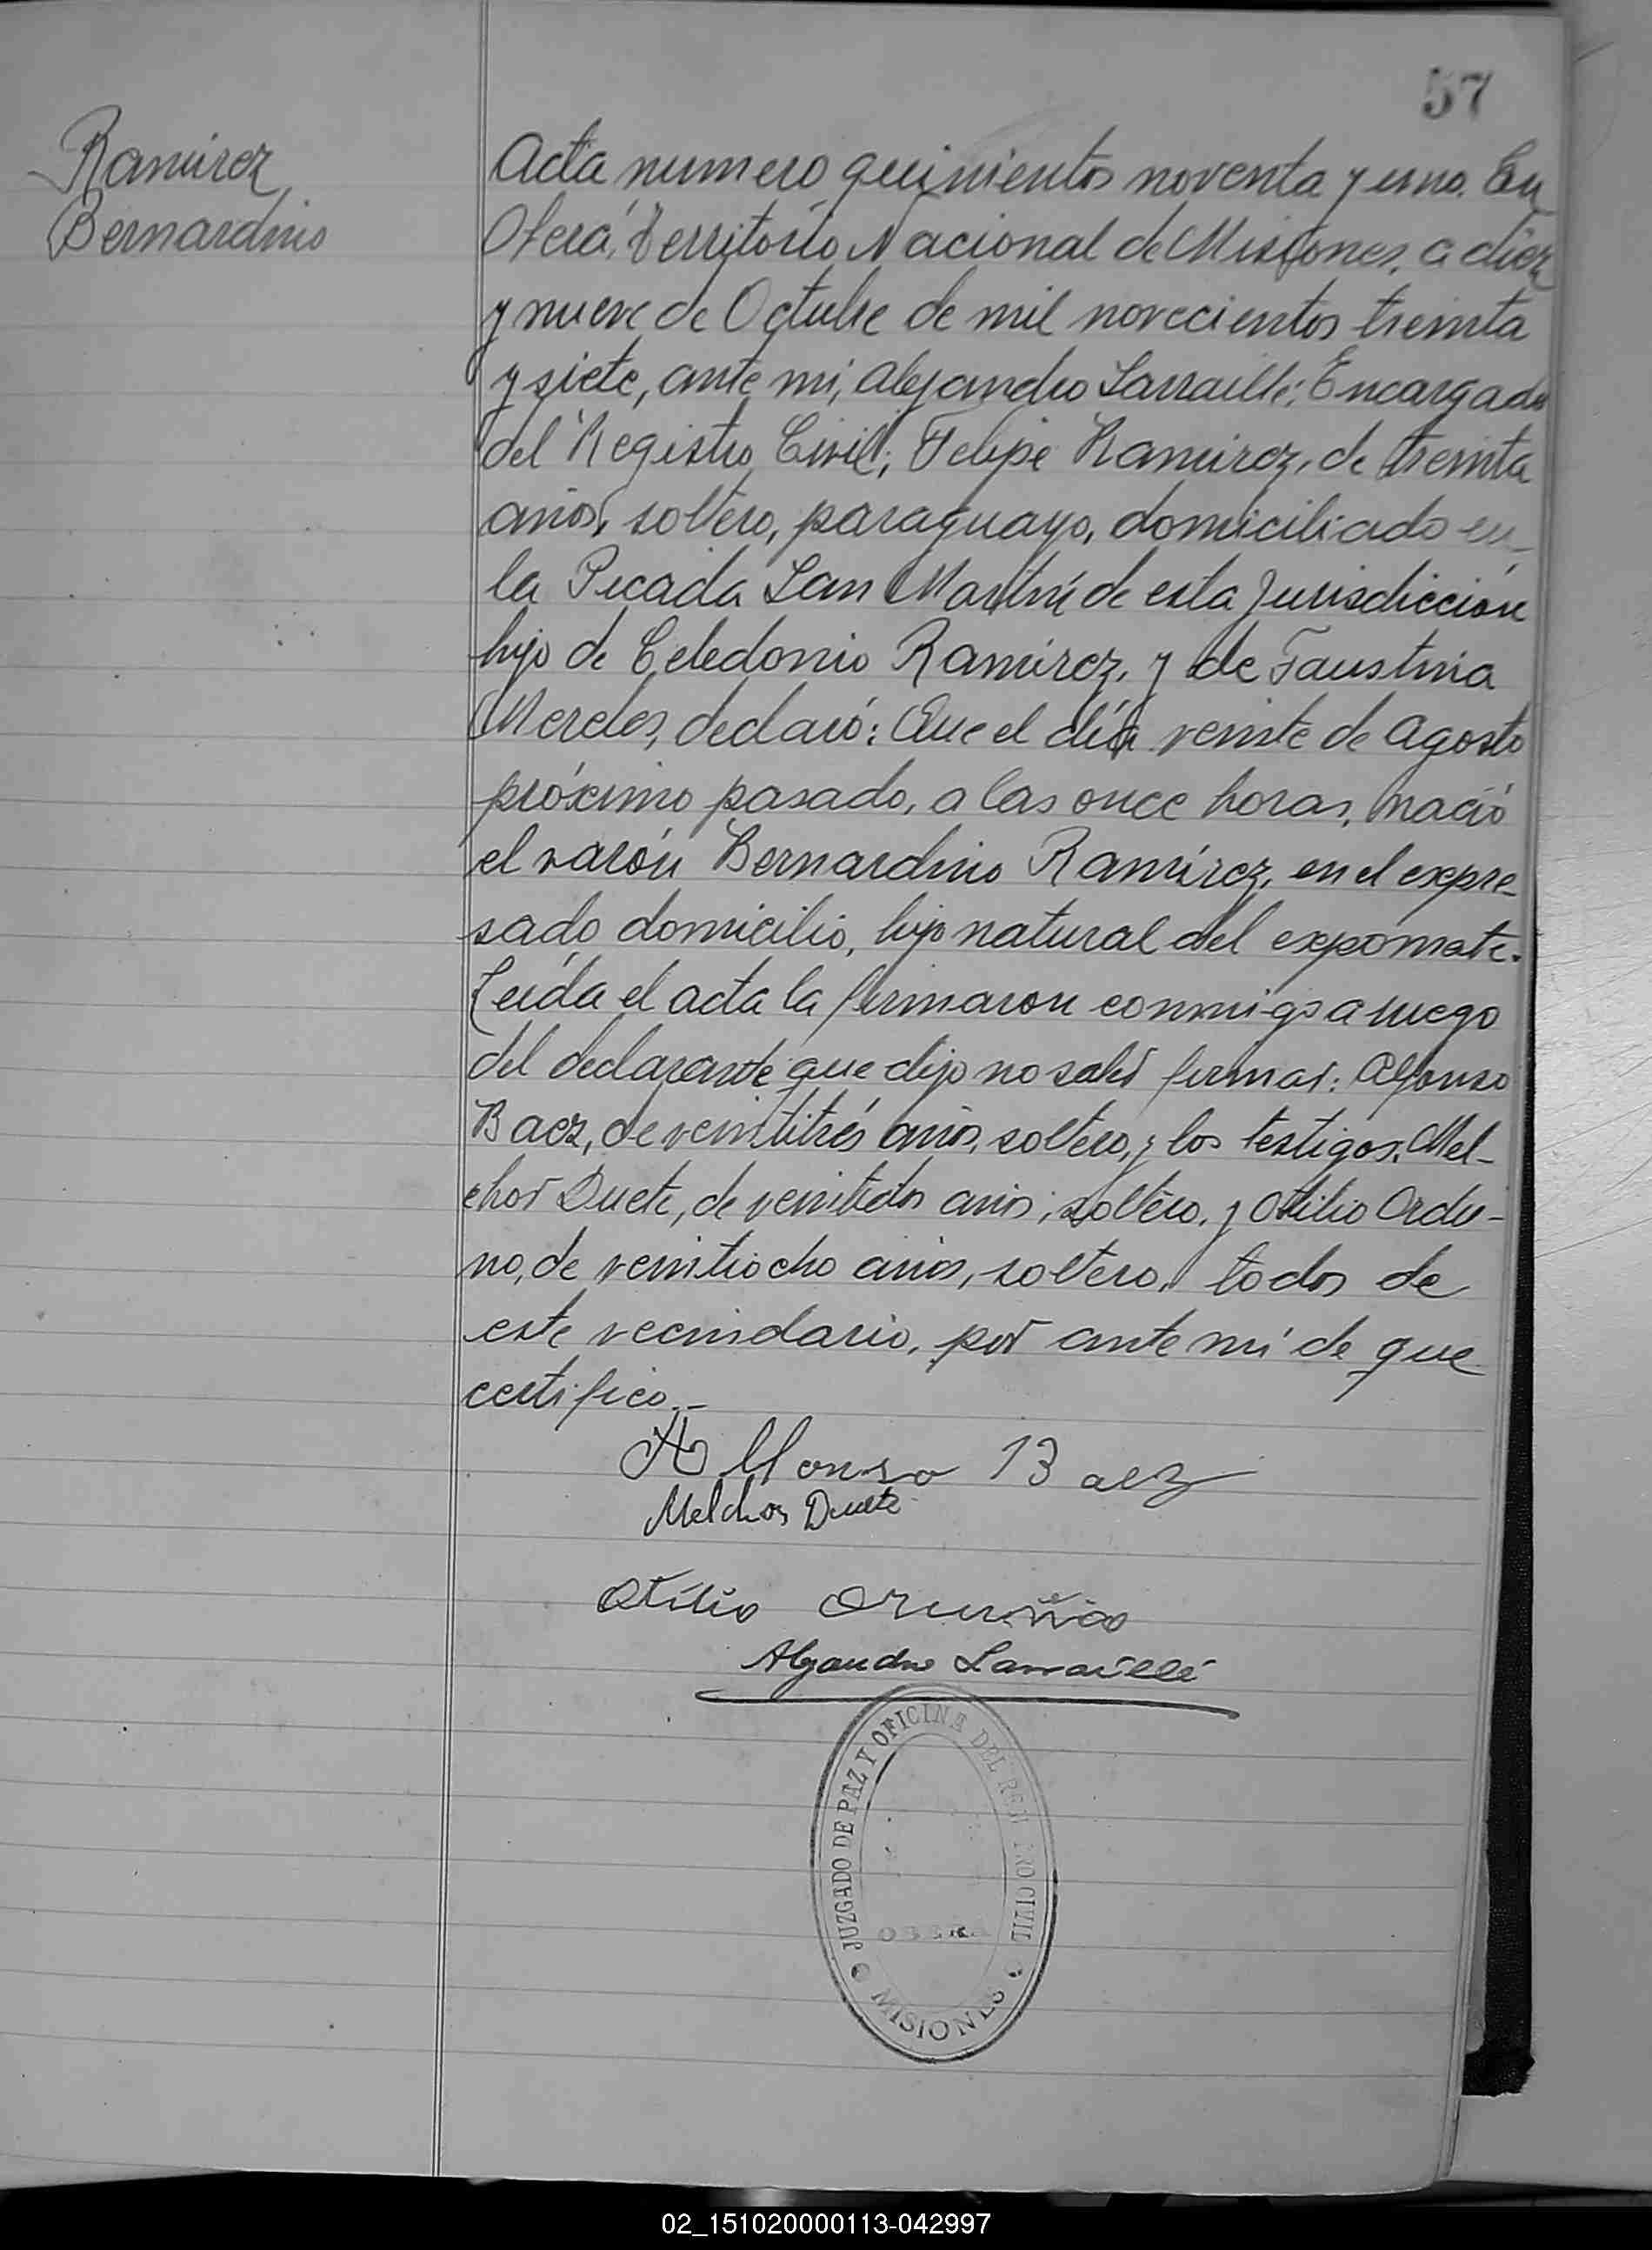 57
Ramirez
Bernardino
Acta numero quinientos noventa y uno. En
Oberá, Territorio Nacional de Misiones, a diez
y nueve de Octubre de mil novecientos treinta
y siete, ante mi, Alejandro Larraillé; Encargado
del Registro Civil; Felipe Ramirez, de treinta
años, soltero, paraguayo, domiciliado en
la Picada San Martín de esta jurisdicción
hijo de Celedonio Ramirez, y de Faustina
Mereles, declaró: Que el día veinte de Agosto
próximo pasado, a las once horas, nació
el varón Bernardino Ramírez, en el expre-
sado domicilio, hijo natural del exponente.
Leída el acta la firmaron conmigo a ruego
del declarante que dijo no saber firmar: Alfonso
Baez, de veintitrés años, soltero, y los testigos, Mel-
chor Duete, de veintidos años, soltero, y Otilio Ordu-
no, de veintiocho años, soltero, todos de
este vecindario, por ante mí de que
certifico.-
Alfonso Baez
Melchor Duete
Otilio Oruñao
Alejandro Larraillé
JUZGADO DE PAZ Y OFICINA DEL REGISTRO CIVIL
OBERA
MISIONES
02_151020000113-042997